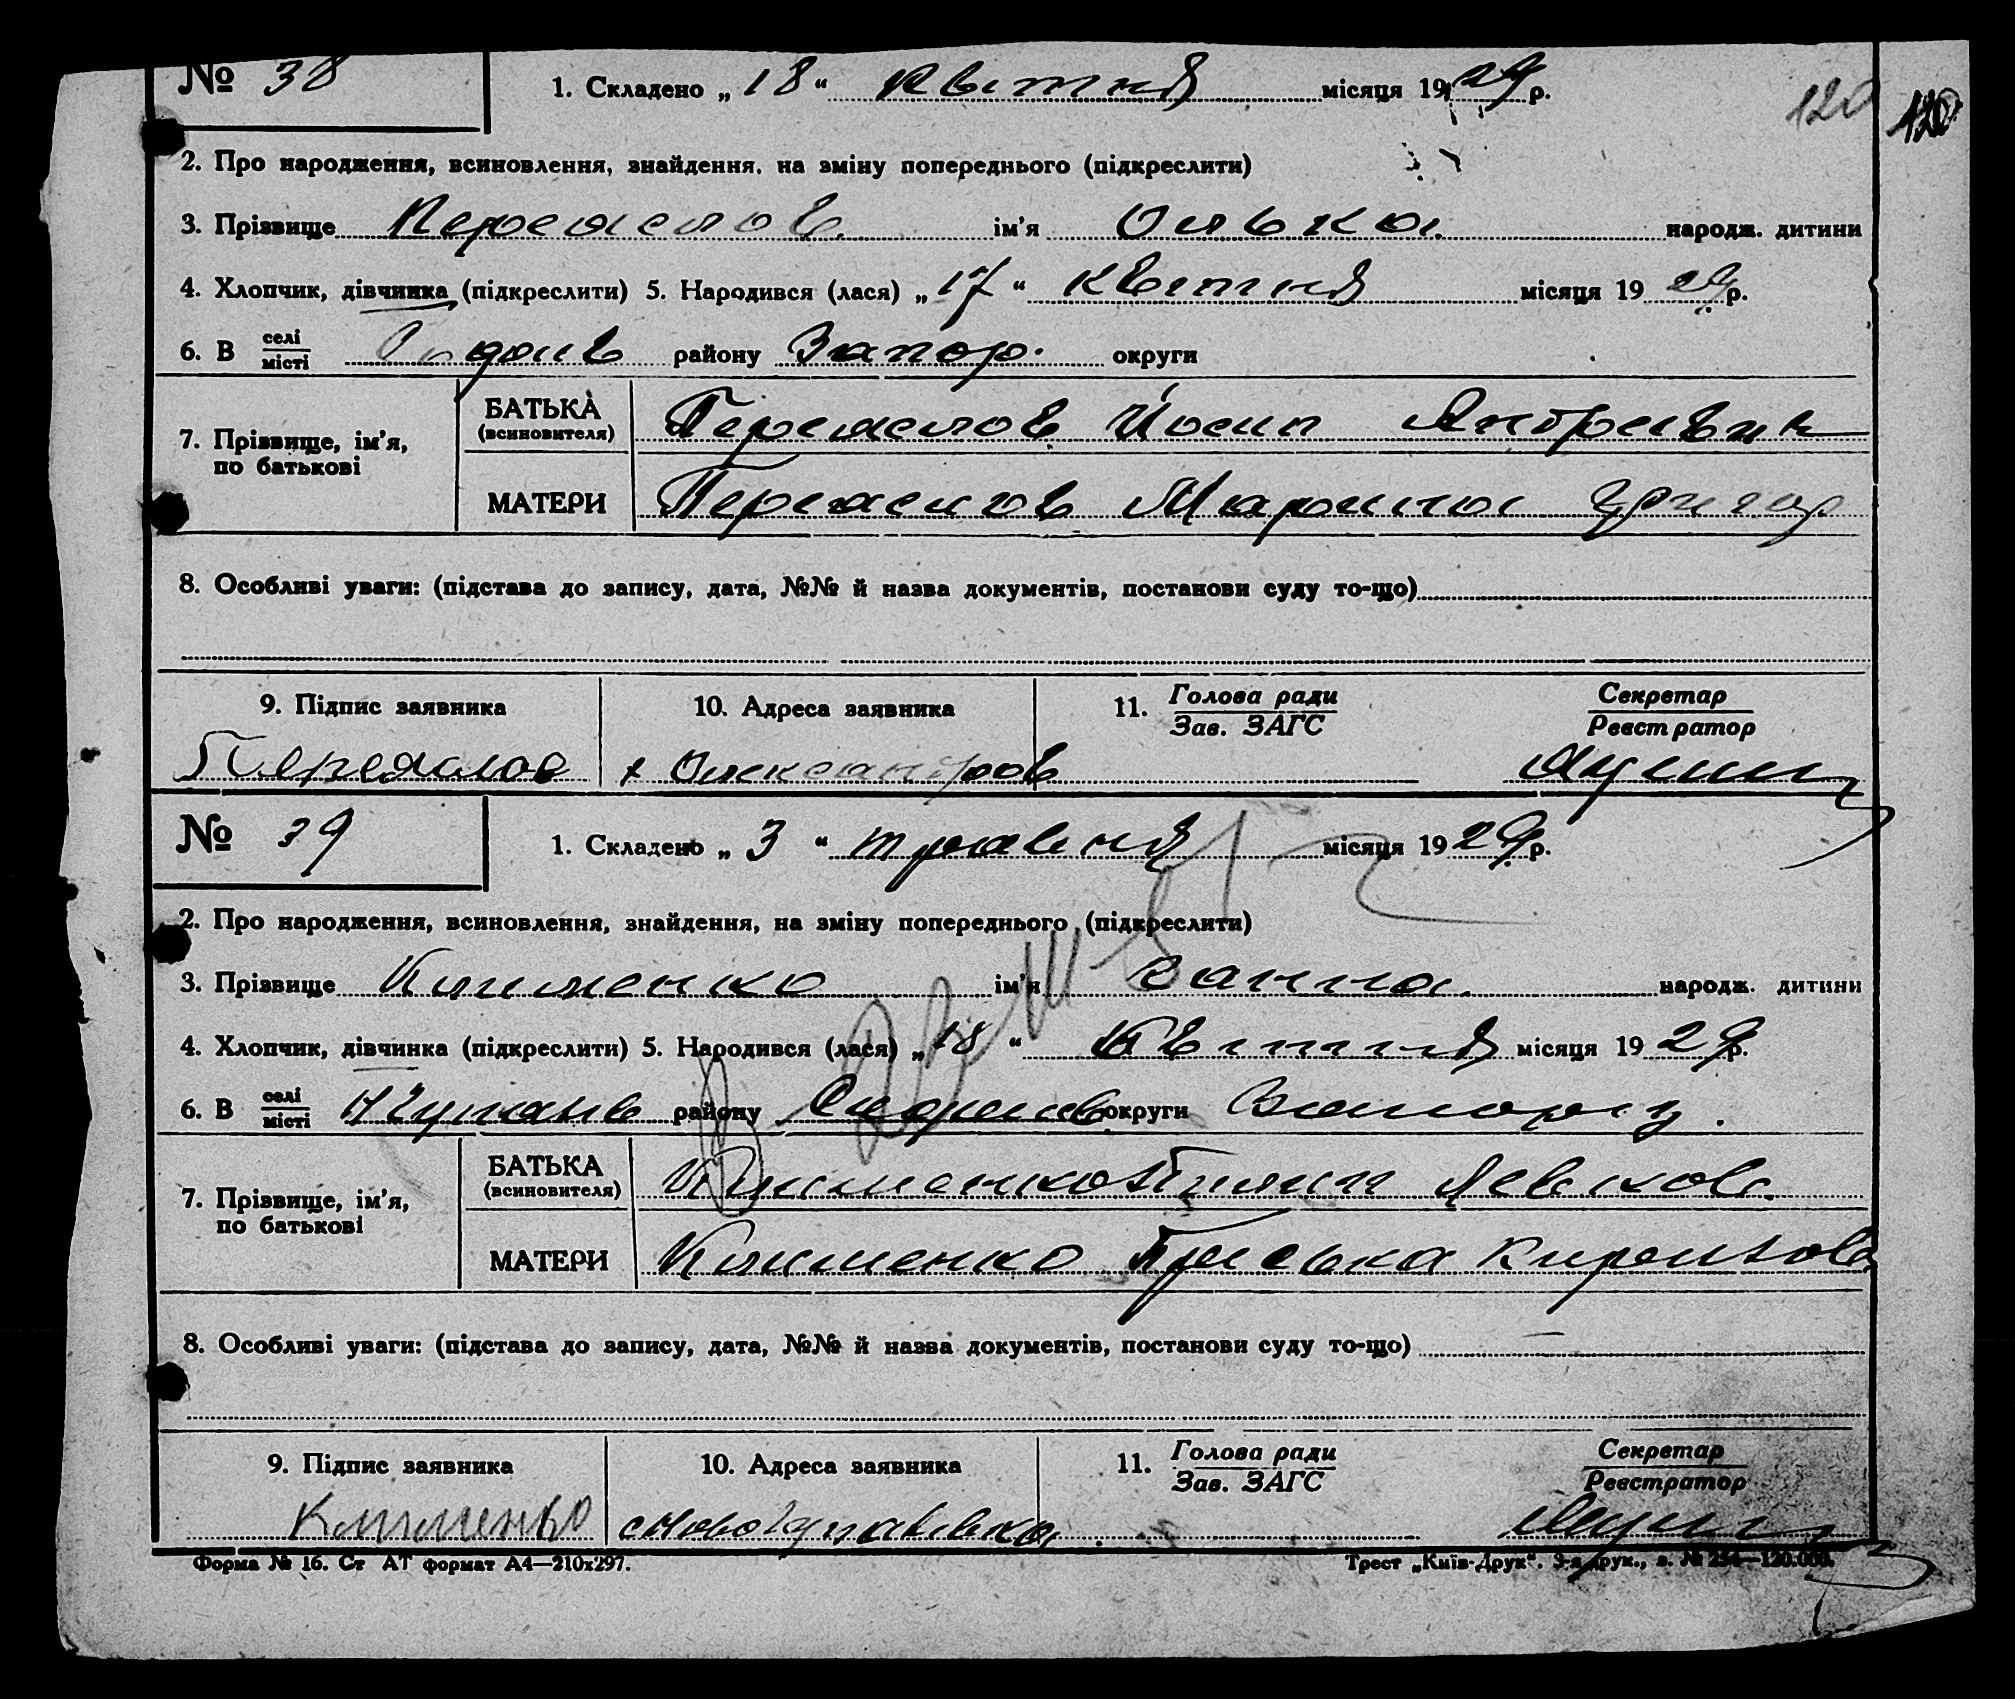 № 38
1. Складено „ 18 “ квітня місяця 1929 р.
120 120
2. Про народження, всиновлення, знайдення, на зміну попереднього (підкреслити)
3. Прізвище Переяслов ім’я Олька народж. дитини
4. Хлопчик, дівчинка (підкреслити) 5. Народився (лася) „ 17 “ квітня місяця 1929 р.
6. В селі місті району Запор. округи
7. Прізвище, ім’я, по батькові
БАТЬКА (всиновителя) Переяслов Йосип Андреєвич
МАТЕРИ Переяслов Марина Григор
8. Особливі уваги: (підстава до запису, дата, №№ й назва документів, постанови суду то-що)
9. Підпис заявника 10. Адреса заявника 11. Голова ради Зав. ЗАГС Секретар Реєстратор
Переяслов х Олександров
№ 39
1. Складено „ 3 “ травня місяця 1929 р.
2. Про народження, всиновлення, знайдення, на зміну попереднього (підкреслити)
3. Прізвище Клименко ім’я Ганна народж. дитини
4. Хлопчик, дівчинка (підкреслити) 5. Народився (лася) „ 18 “ Квітня місяця 1929 р.
6. В селі місті району округи
7. Прізвище, ім’я, по батькові
БАТЬКА (всиновителя) Клименко
МАТЕРИ Клименко Приська Кирилова
8. Особливі уваги: (підстава до запису, дата, №№ й назва документів, постанови суду то-що)
9. Підпис заявника 10. Адреса заявника 11. Голова ради Зав. ЗАГС Секретар Реєстратор
Клименко
Форма № 16. Ст АТ формат А4—210х297. Трест „Київ-Друк“. 3-я друк., з. № 254—120.000.